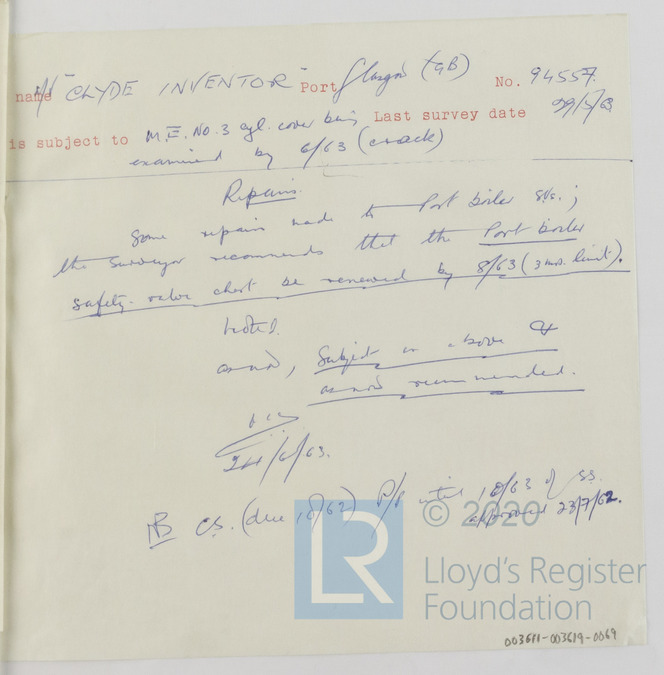 name M/V "CLYDE INVENTOR" Port Glasgow (GB) No. 94557.
is subject to M.E. No. 3 cyl. cover being Last survey date 29/5/63
examined by 6/63 (crack)
Repairs.
Some repairs made to Port boiler S.Vs.;
the Surveyor recommends that the Port boiler
safety-valve chest be renewed by 8/63 (3 mos. limit).
Noted.
as now, Subject as above &
as now recommended.
24/6/63.
NB CS. (due 10/62) P/P until 10/63 if SS.
approved 23/7/62.
© 2020
LR
Lloyd's Register
Foundation
003611-003619-0069